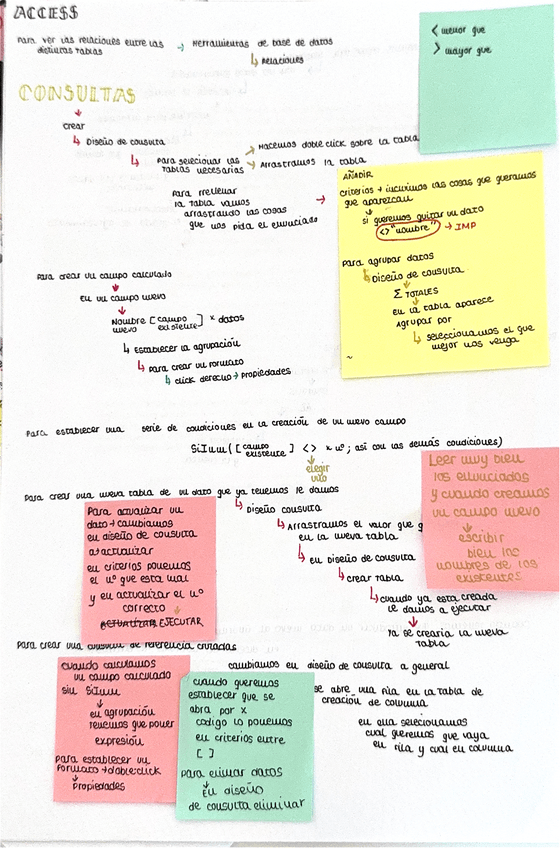 ACCESS
Para ver las relaciones entre las → Herramientas de base de datos
distintas tablas
↳ Relaciones
< menor que
> mayor que
CONSULTAS
Crear
↳ Diseño de consulta
↳ Para seleccionar las
tablas necesarias
→ Hacemos doble click sobre la tabla
→ Arrastramos la tabla
Para rellenar
la tabla vamos
arrastrando las cosas
que nos pida el enunciado
→
AÑADIR
criterios → incluimos las cosas que queramos
que aparezcan
si queremos quitar un dato
<> "nombre" → IMP
Para agrupar datos
↳ Diseño de consulta
Σ TOTALES
en la tabla aparece
agrupar por
↳ seleccionamos el que
mejor nos venga
~
Para crear un campo calculado
en un campo nuevo
Nombre [campo ] × datos
nuevo existente
↳ Establecer la agrupación
↳ Para crear un formato
↳ click derecho → Propiedades
Para establecer una serie de condiciones en la creación de un nuevo campo
SiInm ([campo ] <> × nº; así con las demás condiciones)
existente
elegir
uno
Para crear una nueva tabla de un dato que ya tenemos le damos
↳ Diseño consulta
↳ Arrastramos el valor que
en la nueva tabla
↳ en Diseño de consulta
↳ crear tabla
↳ cuando ya esta creada
le damos a ejecutar
ya se crearia la nueva
tabla
Leer muy bien
los enunciados
y cuando creamos
un campo nuevo
escribir
bien los
nombres de los
existentes
Para actualizar un
dato → cambiamos
en diseño de consulta
a actualizar
en criterios ponemos
el nº que esta mal
y en actualizar el nº
correcto
EJECUTAR
Para crear una consulta de referencia cruzadas
cambiamos en diseño de consulta a general
se abre una fila en la tabla de
creación de columna
en ella seleccionamos
cual queremos que vaya
en fila y cual en columna
cuando calculamos
un campo calculado
sin SiInm
en agrupación
tenemos que poner
expresión
Para establecer un
formato → dobleclick
Propiedades
cuando queremos
establecer que se
abra por x
codigo lo ponemos
en criterios entre
[ ]
Para elimar datos
en diseño
de consulta eliminar